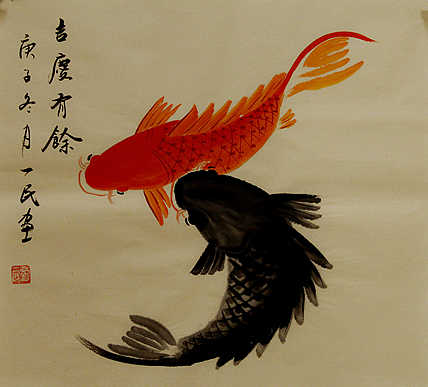 吉慶有餘
庚子冬月一民画